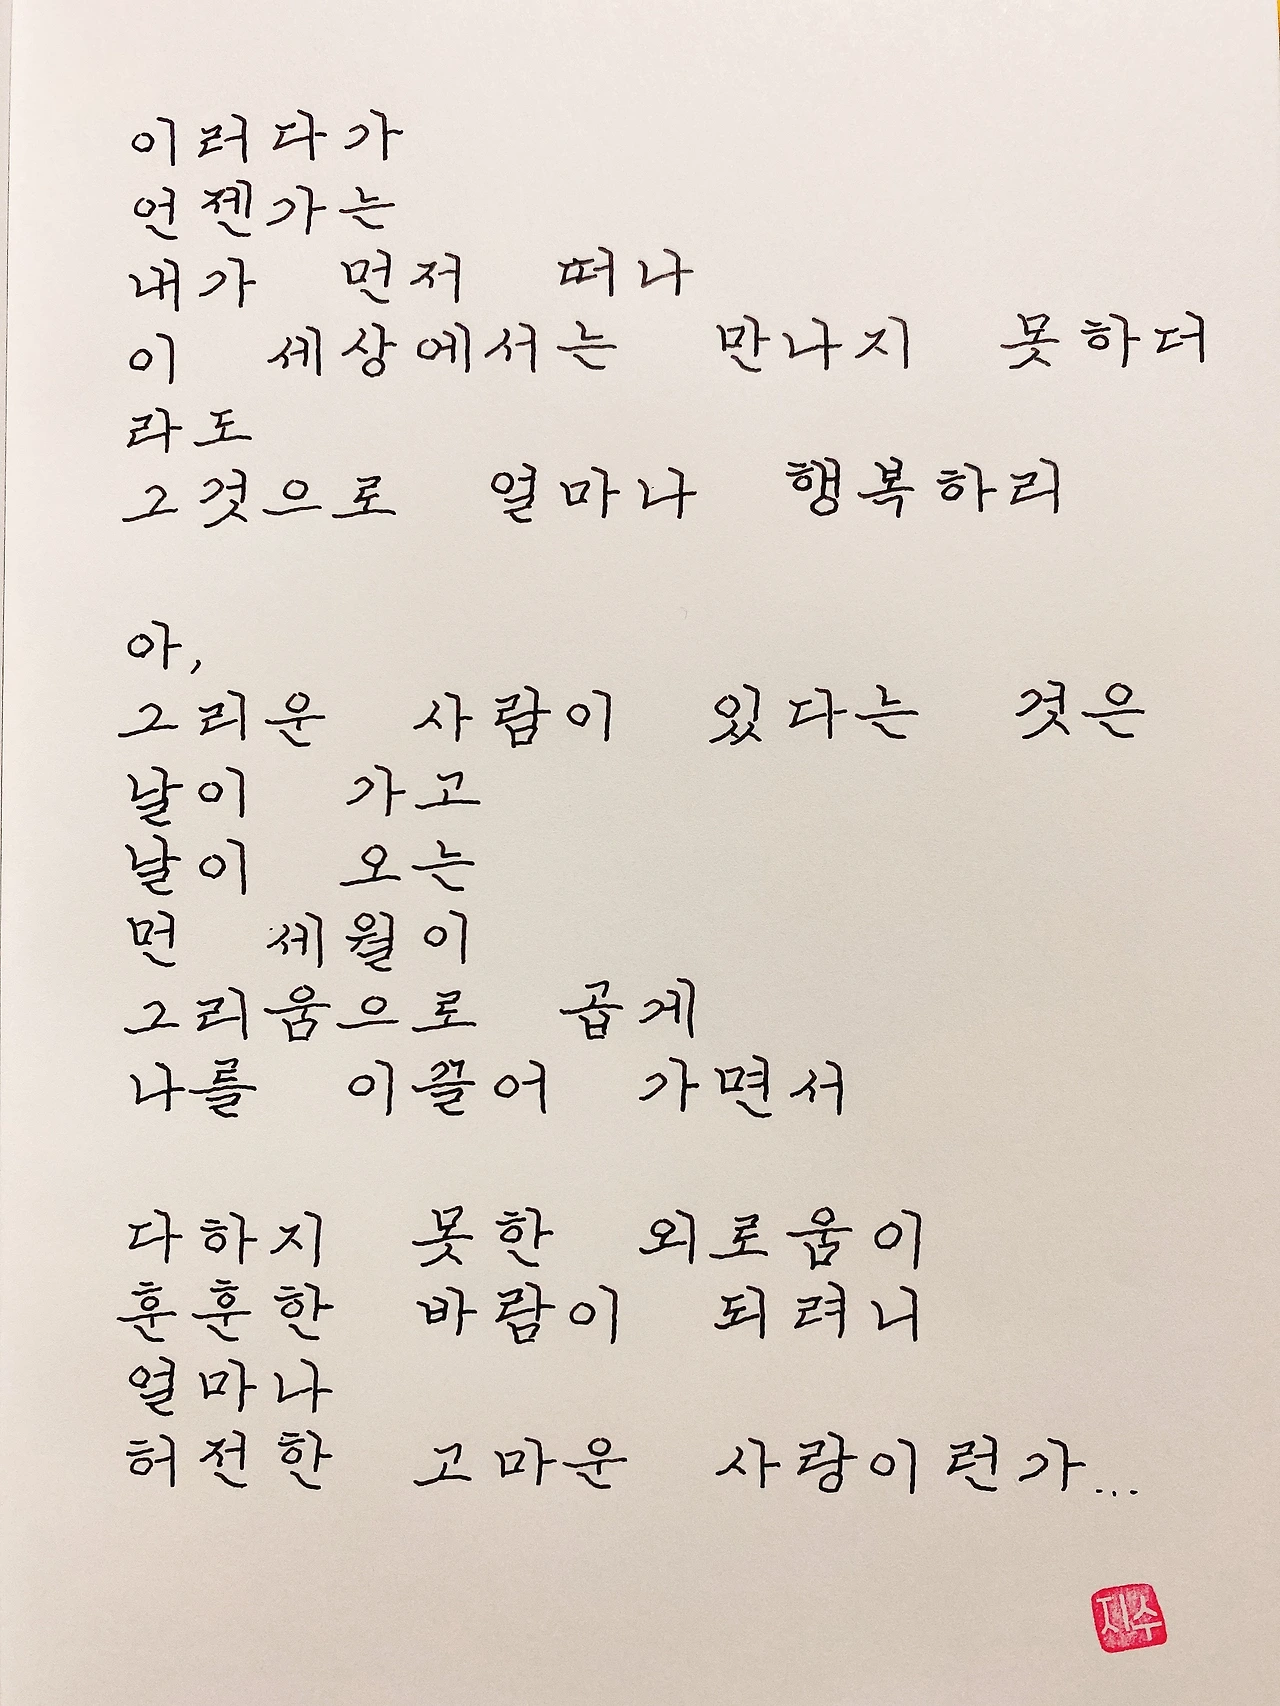 이러다가
언젠가는
내가 먼저 떠나
이 세상에서는 만나지 못하더
라도
그것으로 얼마나 행복하리

아,
그리운 사람이 있다는 것은
날이 가고
날이 오는
먼 세월이
그리움으로 곱게
나를 이끌어 가면서

다하지 못한 외로움이
훈훈한 바람이 되려니
얼마나
허전한 고마운 사랑이런가...
지수